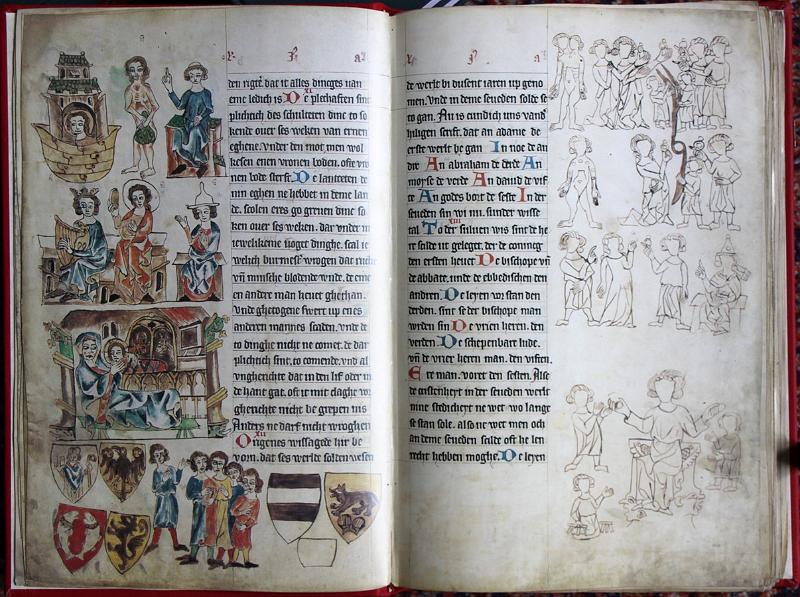 den richte dat it alles dinges van
eme ledich is De plechaften sint
plichtich des schulteten dinc to so
kende ouer ses weken van ernen
eghene. vnder den mot men wol
kesen enen vronen boden. ofte
nen bode sterft. De lantseten de
nen eghen ne hebbet in deme lan
de. scolen eres go greuen dinc so
ken ouer ses weken. dar vnder in
iewelikeme sog dinghe. scal ie
welich burmest wrogen dat
vn minsche blodende wnde. de eme
en andere man heuet ghedan.
Vnde ghetogene swert up enes
anderen mannes scaden. vnde
to dinghe nicht ne comet. de dar
plichtich sint. to comende. vnd al
vngherichte dat in den lif oder in
de hant gat. oft it mit claghe
gherichte nicht be grepen nis
Anders ne darf nicht wroghen
XII
Origenes wissagede hir be
vorn. dat ses werlde solden wesen
de werlt bi dusent iaren up geno
men. vnde in deme seueden solde se
to gan. Nu is cundich uns van der
hiligen scrift. dat an adame de
erste werlt be gan In noe de an
dre An abraham de derde An
moyse de verde An dauid de vif
te An godes bort de seste In der
seueden sin wi nu. sunder wisse
tal To der suluen wis sint de he
re scilde ut geleget. der de coning
den ersten heuet De bischope vn
de abbate. unde de ebbedischen den
anderen. De leyen vorstan den
derden. sint se der bischope man
worden sin De vrien heren. den
verden De schepenbare lude.
vn de vrier heren man. den viften.
Ere man. voret den sesten. Also
de cristenheyt in der seueden werlt
nine stedicheyt ne wet wo lange
se stan sole. also ne wet men och
an deme seueden scilde oft he len
recht hebben moghe. De leyen